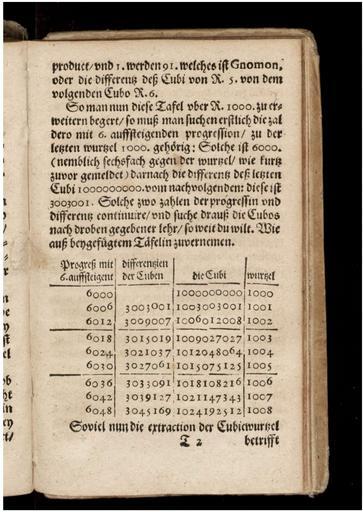 product/ vnd 1. werden 91. welches ist Gnomon,
oder die differentz deß Cubi von R. 5. von dem
volgenden Cubo R. 6.
So man nun diese Tafel vber R. 1000. zu er-
weitern begert/ so muß man suchen erstlich die zal
dero mit 6. auffsteigenden progression/ zu der
letzten wurtzel 1000. gehörig: Solche ist 6000.
(nemblich sechsfach gegen der wurtzel/ wie kurtz
zuvor gemeldet) darnach die differentz deß letzten
Cubi 1000000000. vom nachvolgenden: diese ist
3003001. Solche zwo zahlen der progressin vnd
differentz continuire/ vnd suche drauß die Cubos
nach droben gegebener lehr/ so weit du wilt. Wie
auß beygefügtem Täfelin zuvernemen.
Progreß mit differentzien die Cubi wurtzel
6. auffsteigent der Cuben
6000 1000000000 1000
6006 3003001 1003003001 1001
6012 3009007 1006012008 1002
6018 3015019 1009027027 1003
6024 3021037 1012048064 1004
6030 3027061 1015075125 1005
6036 3033091 1018108216 1006
6042 3039127 1021147343 1007
6048 3045169 1024192512 1008
Soviel nun die extraction der Cubicwurtzel
T 2 betrifft